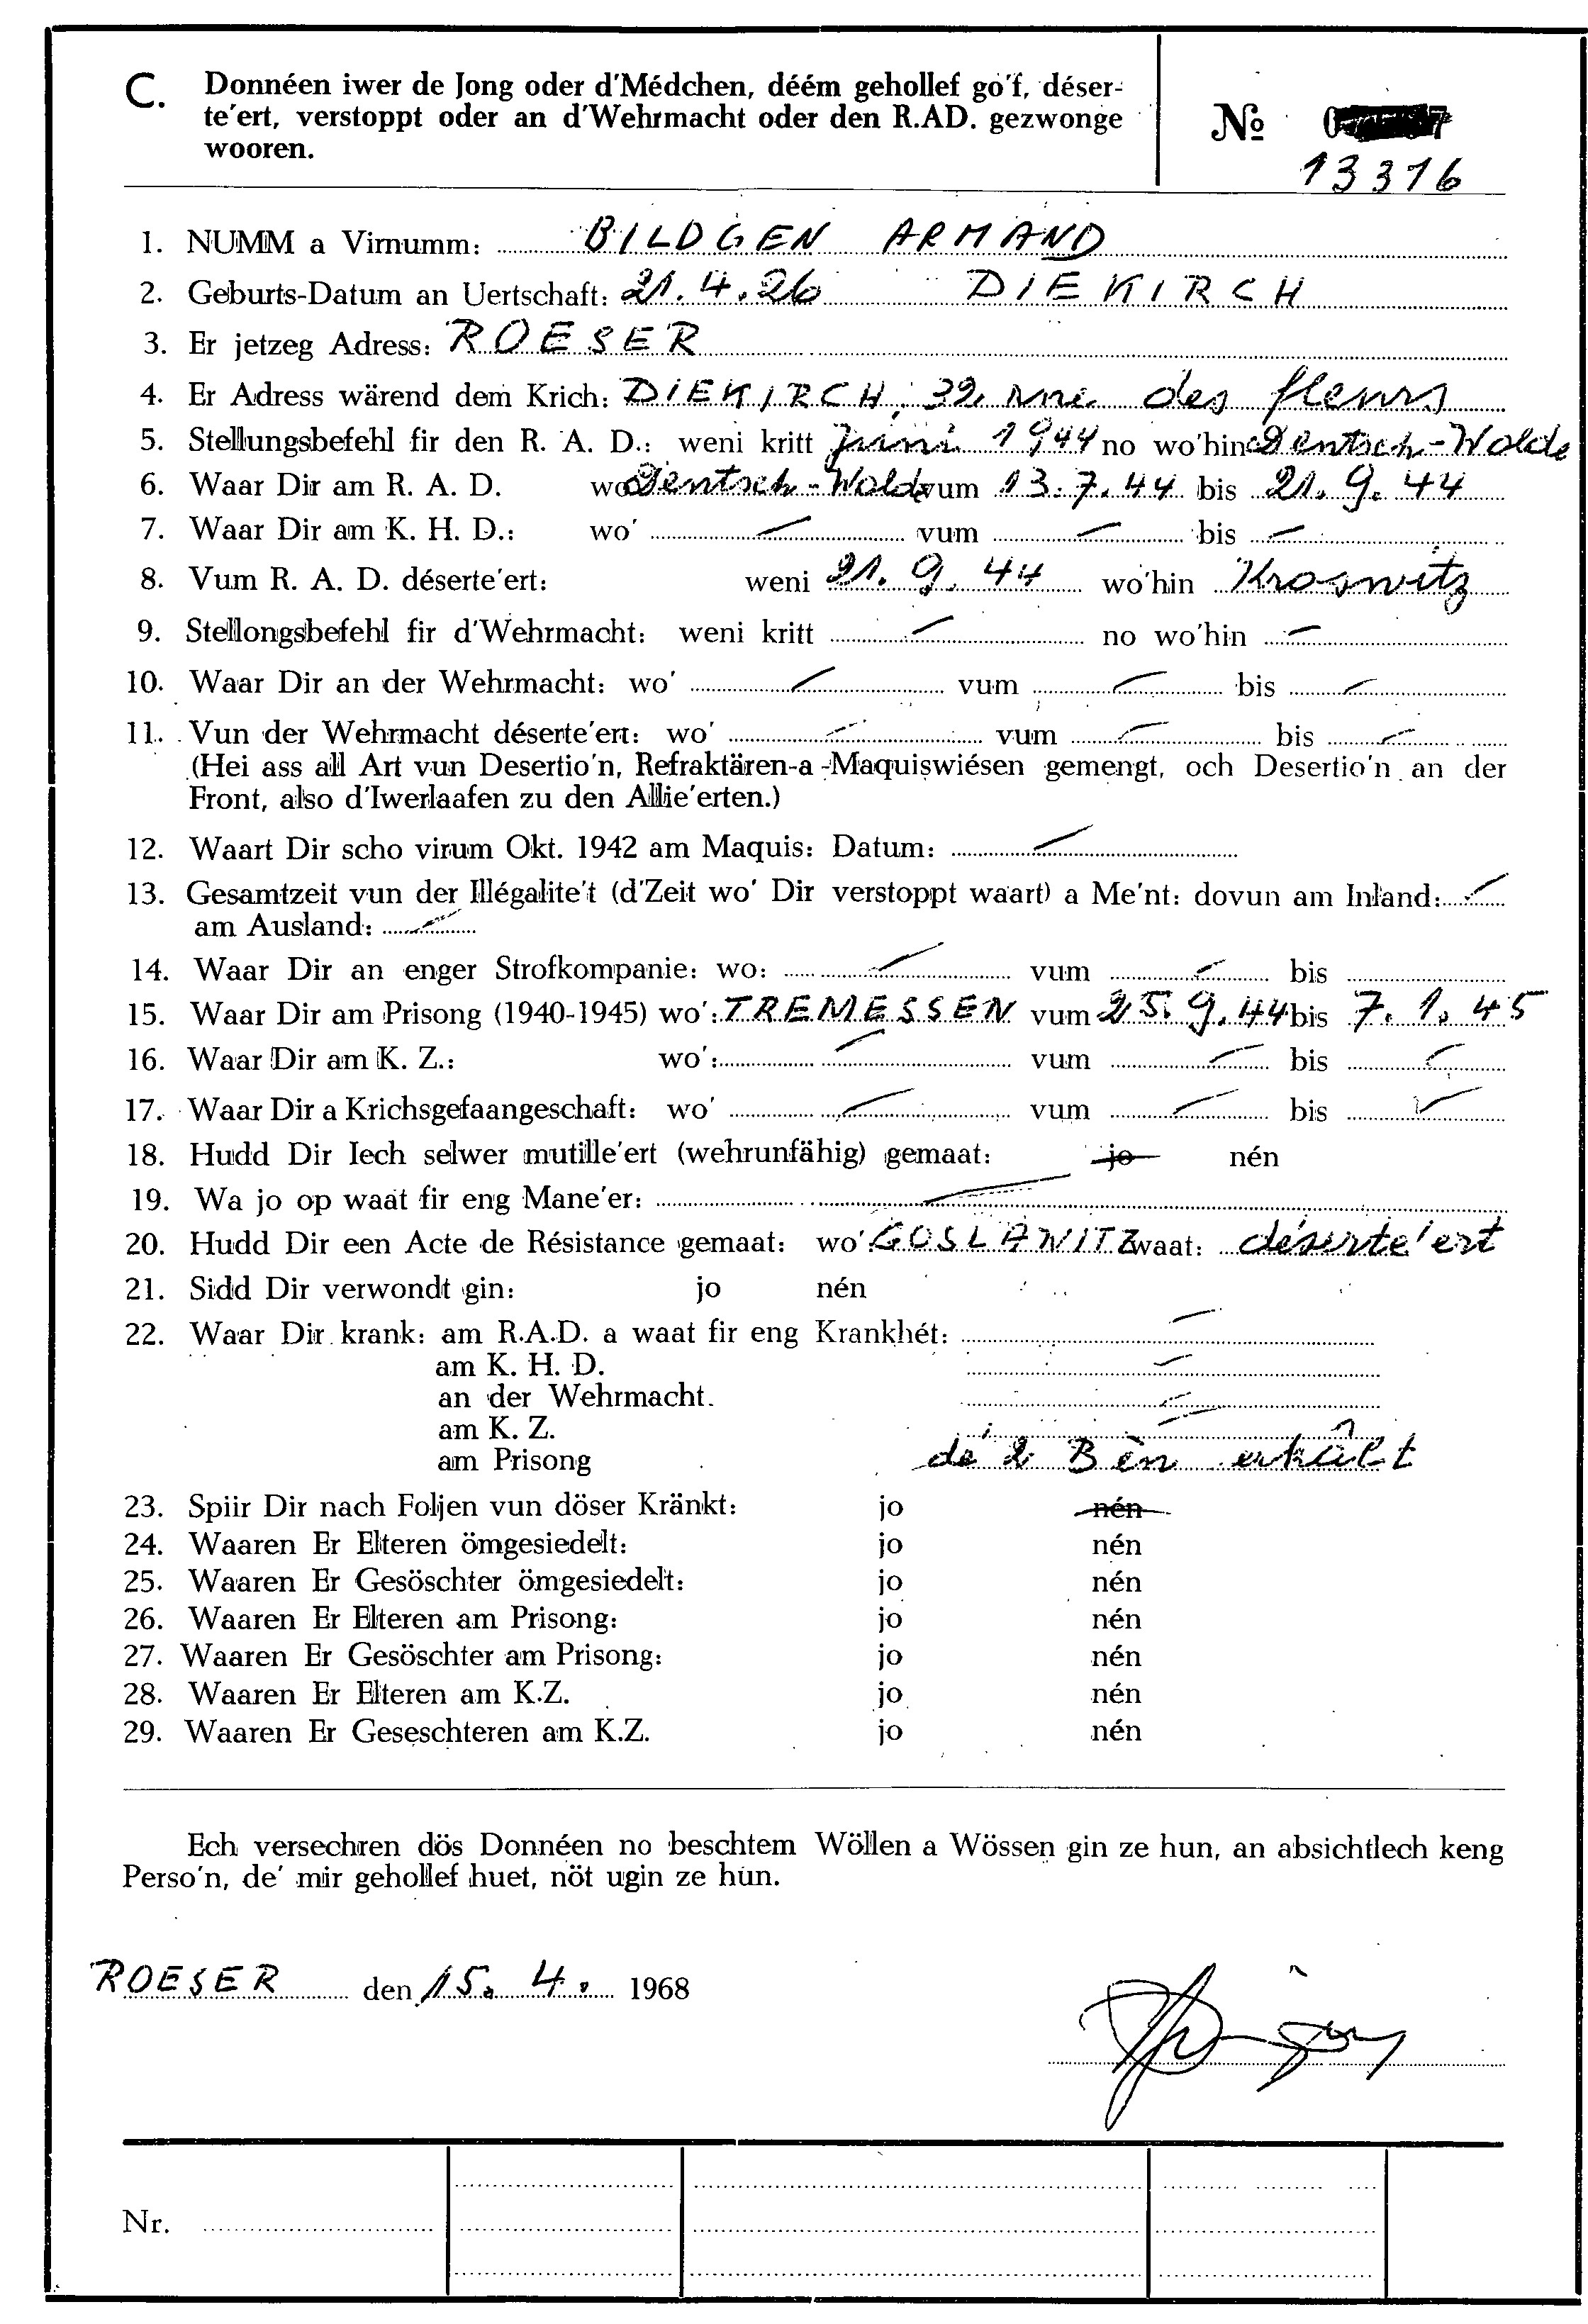 C. Donnéen iwer de Jong oder d'Médchen, déém gehollef go'f, déser-
te'ert, verstoppt oder an d'Wehrmacht oder den R.AD. gezwonge
wooren.
№ 13316
1. NUMM a Virnumm: BILDGEN ARMAND
2. Geburts-Datum an Uertschaft: 21.4.26 DIEKIRCH
3. Er jetzeg Adress: ROESER
4. Er Adress wärend dem Krich: DIEKIRCH, 32, rue des fleurs
5. Stellungsbefehl fir den R. A. D.: weni kritt Juni 1944 no wo'hin Deutsch-Wolde
6. Waar Dir am R. A. D. wo Deutsch-Wolde vum 13.7.44 bis 21.9.44
7. Waar Dir am K. H. D.: wo' — vum — bis —
8. Vum R. A. D. déserte'ert: weni 21.9.44 wo'hin Kroswitz
9. Stellongsbefehl fir d'Wehrmacht: weni kritt — no wo'hin —
10. Waar Dir an der Wehrmacht: wo' — vum — bis —
11. Vun der Wehrmacht déserte'ert: wo' — vum — bis —
(Hei ass all Art vun Desertio'n, Refraktären-a -Maquiswiésen gemengt, och Desertio'n an der
Front, also d'Iwerlaafen zu den Allie'erten.)
12. Waart Dir scho virum Okt. 1942 am Maquis: Datum: —
13. Gesamtzeit vun der Illégalite't (d'Zeit wo' Dir verstoppt waart) a Me'nt: dovun am Inland: —
am Ausland: —
14. Waar Dir an enger Strofkompanie: wo: — vum — bis
15. Waar Dir am Prisong (1940-1945) wo': TREMESSEN vum 25.9.44 bis 7.1.45
16. Waar Dir am K. Z.: wo': — vum — bis —
17. Waar Dir a Krichsgefaangeschaft: wo' — vum — bis —
18. Hudd Dir Iech selwer mutille'ert (wehrunfähig) gemaat: jo nén
19. Wa jo op waat fir eng Mane'er: —
20. Hudd Dir een Acte de Résistance gemaat: wo' GOSLAWITZ waat: déserte'ert
21. Sidd Dir verwondt gin: jo nén
22. Waar Dir krank: am R.A.D. a waat fir eng Krankhét: —
am K. H. D. —
an der Wehrmacht. —
am K. Z. —
am Prisong dé 2 Bèn erkâlt
23. Spiir Dir nach Foljen vun döser Kränkt: jo nén
24. Waaren Er Elteren ömgesiedelt: jo nén
25. Waaren Er Gesöschter ömgesiedelt: jo nén
26. Waaren Er Elteren am Prisong: jo nén
27. Waaren Er Gesöschter am Prisong: jo nén
28. Waaren Er Elteren am K.Z. jo nén
29. Waaren Er Geseschteren am K.Z. jo nén
Ech versechren dös Donnéen no beschtem Wöllen a Wössen gin ze hun, an absichtlech keng
Perso'n, de' mir gehollef huet, nöt ugin ze hun.
ROESER den 15. 4. 1968
Nr.